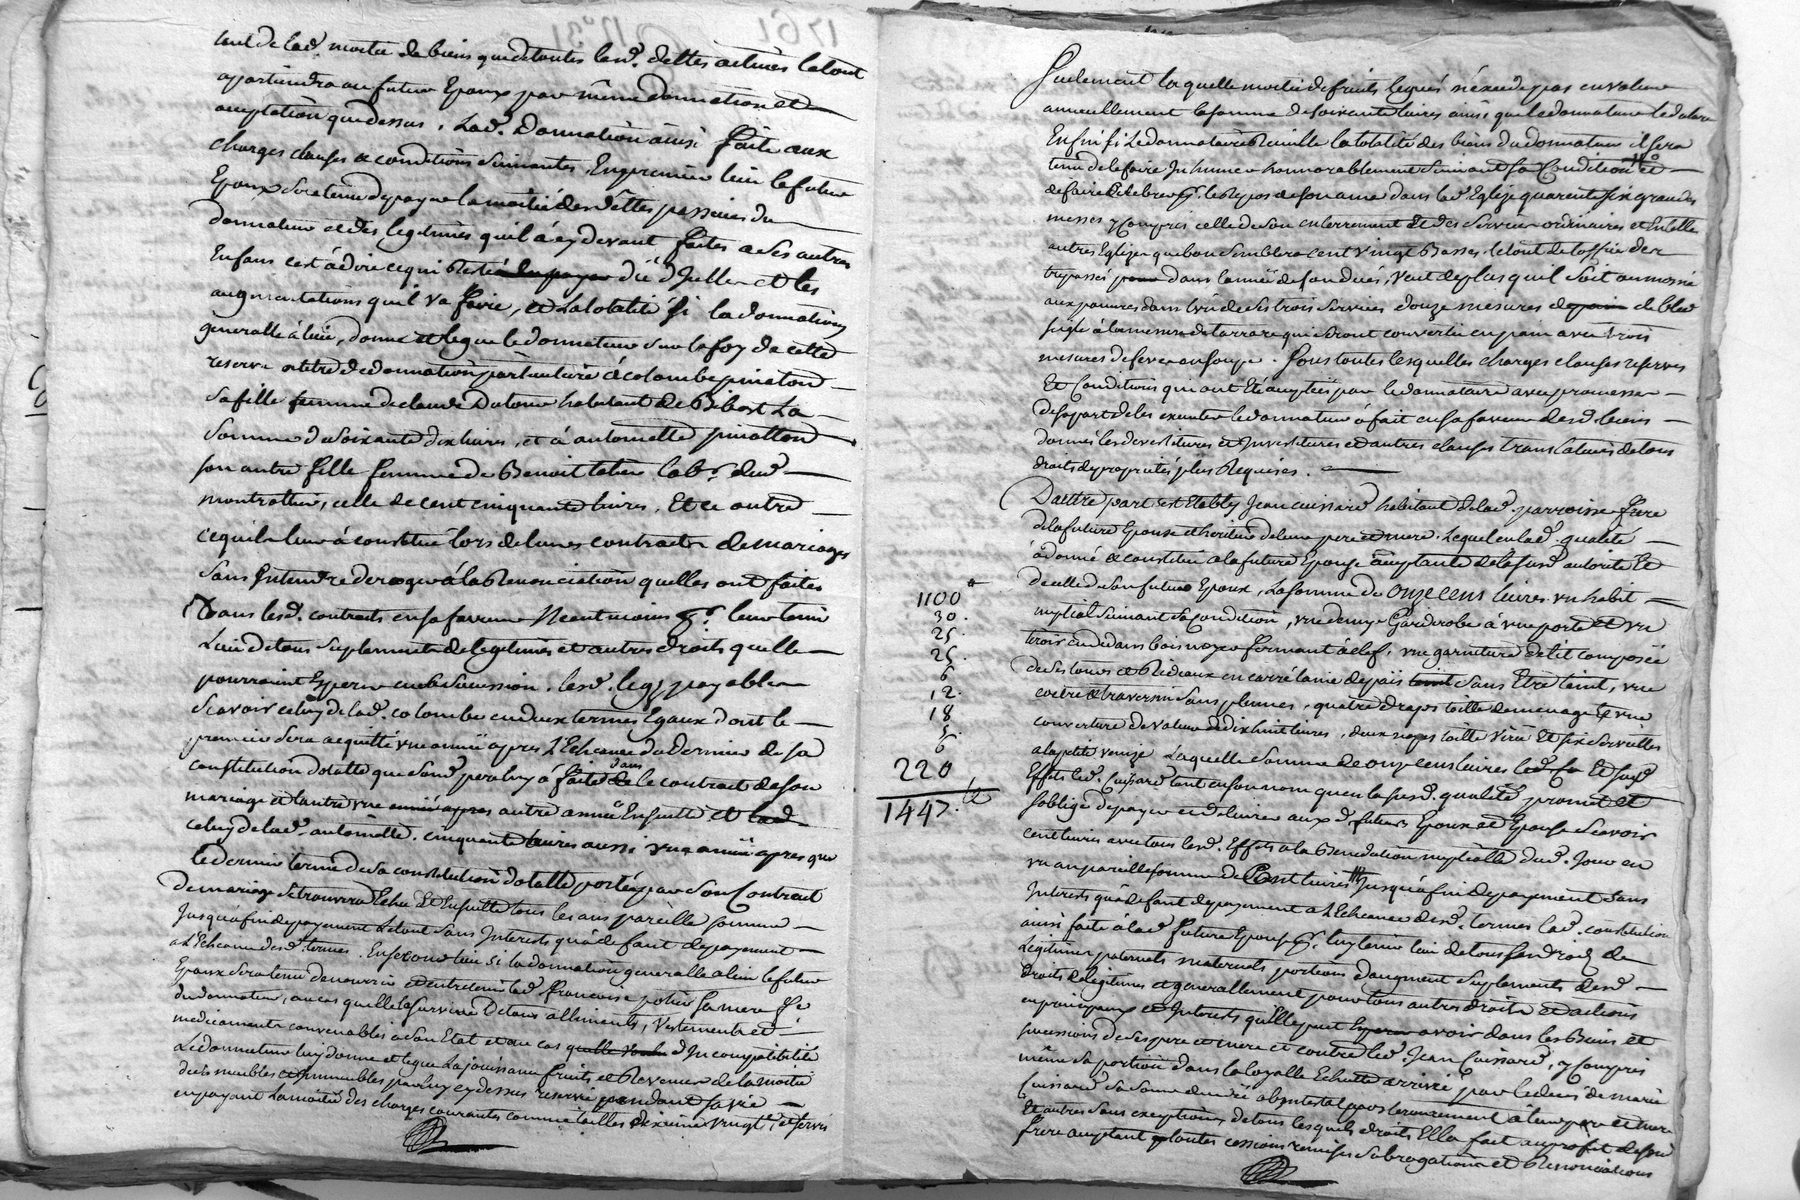 tant de lad. moitié de biens que de toutes lesd. dettes actives le tout
apartiendra au futur Epoux par même donnation et
acceptation que dessus. Lad. Donnation ainsi faite aux
charges clauses et conditions suivantes, En premier lieu le futur
Epoux sera tenu de payer la moitié des dettes passives du
donnateur et des legitimes qu'il a cy devant faites a ses autres
Enfans c'est à dire ce qui Reste d'icelles et les
augmentations qu'il va faire, et la totalité si la donnation
generalle à lieu, donne et legue le donnateur sur la foy de cette
reserve a titre de donnation particulière à colombe pinaton
sa fille femme de claude Dutour habitant de Ribost La
somme de soixante dix livres, et à antoinette pinatton
son autre fille femme de Benoit labr. dud.
montrottier, celle de cent cinquante livres. Et ce outre
ce qu'il leur à constitué lors de leurs contracts de mariages
sans Entendre deroger à la Renonciation quelles ont faites
Dans lesd. contracts en sa faveur Neantmoins pr. leur tenir
Lieu de tous suplements de legitimes et autres droits quelle
pourroient Esperer en sa sucession. lesd. legs payables
Scavoir celuy de lad. colombe en deux termes Egaux dont le
premier sera acquitté une année apres l'Echeance du dernier de sa
constitution dotalle que sond. pere luy à faite dans le contract de son
mariage et l'autre une autre année Ensuitte et
celuy de lad. antoinette. cinquante livres aussi une année apres que
le dernier terme de sa constitution dotalle portée par son Contract
de mariage se trouvera Echu Et Ensuitte tous les ans pareille somme
Jusqu'à fin de payement Le tout sans Interests qu'à defaut de payement
a l'Echeance desd. termes. En second lieu si la donnation generalle a lieu le futur
Epoux sera tenu de nourrir et entretenir lad. francoise sa mere fe.
du donnateur, au cas quelle le survive De tous alliments, Vestements et
medicaments convenables a son Etat et au cas d'Incompatibilité
Le donnateur luy donne et legue La jouissance fruits et Revenus de la moitié
des meubles et immeubles par luy cy dessus reservé pendant sa vie
en payant La moitié des charges courantes comme tailles dixieme vingt. et servis
Seulement la quelle moitié de fruits legués n'excede pas en valeur
annuellement la somme de soixante livres ainsi que le donnateur le declare
Enfin si Le donnataire Recuille la totalité des biens du donnateur il sera
tenu de le faire Inhumer honnorablement suivant sa Condition et
de faire Celebrer pr. le Repos de son ame dans lad. Eglize quarente six grandes
messes y Compris celle de son enterrement et des services ordinaires et En telle
autres Eglizes que bon semblera cent vingt Basses. le tout de l'office des
trepassés dans l'année de son decés, Veut de plus qu'il soit aumosné
aux pauvres dans l'un de ses trois services douze mesures de bled
seigle à la mesure de tarrare qui seront converties en pain avec trois
mesures de feves en soupe. Sous toutes lesquelles charges clauses reserves
Et Conditions qui ont Eté acceptées par le donnataire avec promesse
de sa part de les executer le donnateur à fait en sa faveur desd. biens
donnés les devestitures et Investitures et autres clauses translatives de tous
droits de proprietés plus Requises.
D'autre part est Etably Jean cuissard habitant de lad. parroisse frere
de la future Epouse et heritier de leurs pere et mere. Lequel en lad. qualité
à donné et constitué a la future Epouse acceptante de la susd. autorité Et
de celle de son futur Epoux, La somme de onze cens livres. un habit
nuptial suivant sa condition, une demye Garderobe à une porte et un
tiroir en dedans bois noyer fermant à clef, une garniture de lit composée
de ses tours et Rideaux en carré laine de pais sans Etre teint, une
coitre et traversin sans plumes, quatre draps toille de menage et une
couverture de valeur de dix huit livres, deux napes toille Et six serviettes
a la petite venize Laquelle somme de onze cens livres led. Et susd.
Effets led. Cuissard tant en son nom qu'en la susd. qualité promet et
s'oblige de payer et delivrer aux d. futurs Epoux et Epouse Scavoir
cent livres avec tous lesd. Effets a la Benediction nuptialle dud. Jour en
un an pareille somme de Cent livres Jusqu'à fin de payement sans
Interests qu'à defaut de payement a l'Echeance desd. termes lad. constitution
ainsi faite à lad. future Epouse pr. luy tenir lieu de tous ses droits de
Legitimes paternels maternels portions d'augment suplements desd.
droits de legitimes et generallement pour tous autres droits et actions
en principaux et Interests qu'Elle peut Esperer avoir dans les Biens et
sucessions de ses pere et mere et contre led. Jean Cuissard, y Compris
même sa portion dans la loyalle Echutte arrivée par le deces de marie
Cuissard sa soeur decedée abintestat posterieurement à leurs pere et mere
Et autres sans exceptions, de tous lesquels droits Ella fait au profit de son
frere acceptant toutes cessions remises subrogations et Renonciations
1100
30.
25.
25.
6
12.
18
5.
6
220
1447.